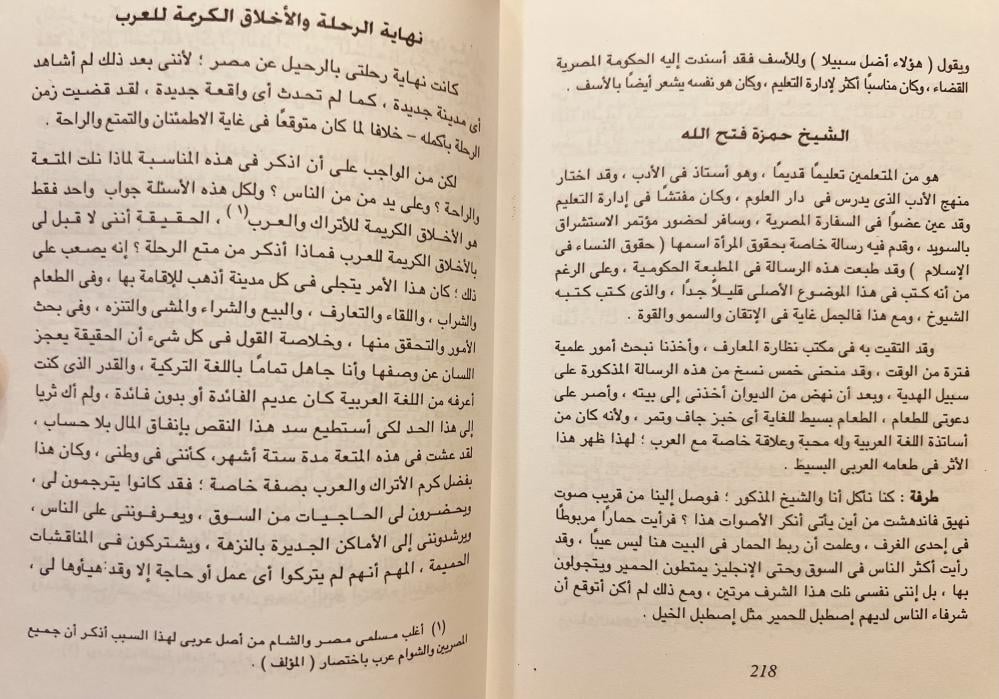 ويقول ( هؤلاء أضل سبيلا ) وللأسف فقد أسندت إليه الحكومة المصرية
القضاء ، وكان مناسبًا أكثر لإدارة التعليم ، وكان هو نفسه يشعر أيضًا بالأسف .
الشيخ حمزة فتح الله
هو من المتعلمين تعليمًا قديمًا ، وهو أستاذ فى الأدب ، وقد اختار
منهج الأدب الذى يدرس فى دار العلوم ، وكان مفتشًا فى إدارة التعليم
وقد عين عضوًا فى السفارة المصرية ، وسافر لحضور مؤتمر الاستشراق
بالسويد ، وقدم فيه رسالة خاصة بحقوق المرأة اسمها ( حقوق النساء فى
الإسلام ) وقد طبعت هذه الرسالة فى المطبعة الحكومية ، وعلى الرغم
من أنه كتب فى هذا الموضوع الأصلى قليلاً جدًا ، والذى كتب كتبه
الشيوخ ، ومع هذا فالجمل غاية فى الإتقان والسمو والقوة .
وقد التقيت به فى مكتب نظارة المعارف ، وأخذنا نبحث أمور علمية
فترة من الوقت ، وقد منحنى خمس نسخ من هذه الرسالة المذكورة على
سبيل الهدية ، وبعد أن نهض من الديوان أخذنى إلى بيته ، وأصر على
دعوتى للطعام ، الطعام بسيط للغاية أى خبز جاف وتمر ، ولأنه كان من
أساتذة اللغة العربية وله محبة وعلاقة خاصة مع العرب ؛ لهذا ظهر هذا
الأثر فى طعامه العربى البسيط .
طرفة : كنا نأكل أنا والشيخ المذكور ؛ فوصل إلينا من قريب صوت
نهيق فاندهشت من أين يأتى أنكر الأصوات هذا ؟ فرأيت حمارًا مربوطًا
فى إحدى الغرف ، وعلمت أن ربط الحمار فى البيت هنا ليس عيبًا ، وقد
رأيت أكثر الناس فى السوق وحتى الإنجليز يمتطون الحمير ويتجولون
بها ، بل إننى نفسى نلت هذا الشرف مرتين ، ومع ذلك لم أكن أتوقع أن
شرفاء الناس لديهم إصطبل للحمير مثل إصطبل الخيل .
218
نهاية الرحلة والأخلاق الكريمة للعرب
كانت نهاية رحلتى بالرحيل عن مصر ؛ لأننى بعد ذلك لم أشاهد
أى مدينة جديدة ، كما لم تحدث أى واقعة جديدة ، لقد قضيت زمن
الرحلة بأكمله – خلافا لما كان متوقعًا فى غاية الاطمئنان والتمتع والراحة .
لكن من الواجب على أن اذكر فى هذه المناسبة لماذا نلت المتعة
والراحة ؟ وعلى يد من من الناس ؟ ولكل هذه الأسئلة جواب واحد فقط
هو الأخلاق الكريمة للأتراك والعرب(١) ، الحقيقة أننى لا قبل لى
بالأخلاق الكريمة للعرب فماذا أذكر من متع الرحلة ؟ إنه يصعب على
ذلك ؛ كان هذا الأمر يتجلى فى كل مدينة أذهب للإقامة بها ، وفى الطعام
والشراب ، واللقاء والتعارف ، والبيع والشراء والمشى والتنزه ، وفى بحث
الأمور والتحقق منها ، وخلاصة القول فى كل شىء أن الحقيقة يعجز
اللسان عن وصفها وأنا جاهل تمامًا باللغة التركية ، والقدر الذى كنت
أعرفه من اللغة العربية كان عديم الفائدة أو بدون فائدة ، ولم أك ثريا
إلى هذا الحد لكى أستطيع سد هذا النقص بإنفاق المال بلا حساب ،
لقد عشت فى هذه المتعة مدة ستة أشهر، كأننى فى وطنى ، وكان هذا
بفضل كرم الأتراك والعرب بصفة خاصة ؛ فقد كانوا يترجمون لى ،
ويحضرون لى الحاجيات من السوق ، ويعرفوننى على الناس ،
ويرشدوننى إلى الأماكن الجديرة بالنزهة ، ويشتركون فى المناقشات
الحميمة ، المهم أنهم لم يتركوا أى عمل أو حاجة إلا وقد هيأوها لى ،
(١) أغلب مسلمى مصر والشام من أصل عربى لهذا السبب أذكر أن جميع
المصريين والشوام عرب باختصار ( المؤلف ) .